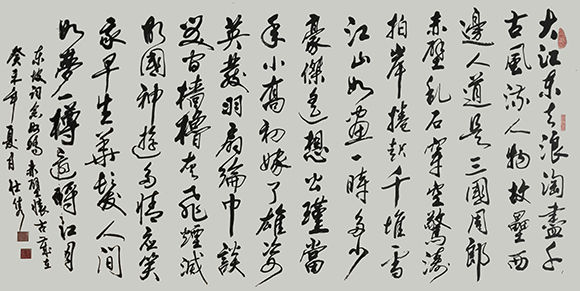 大江東去浪淘盡千
古風流人物故壘西
邊人道是三國周郎
赤壁亂石穿空驚濤
拍岸捲起千堆雪
江山如畫一時多少
豪傑遙想公瑾當
年小喬初嫁了雄姿
英發羽扇綸巾談
笑間檣櫓灰飛煙滅
故國神遊多情應笑
我早生華髮人間
如夢一樽還酹江月
東坡詞念奴嬌赤壁懷古歲在
年夏月